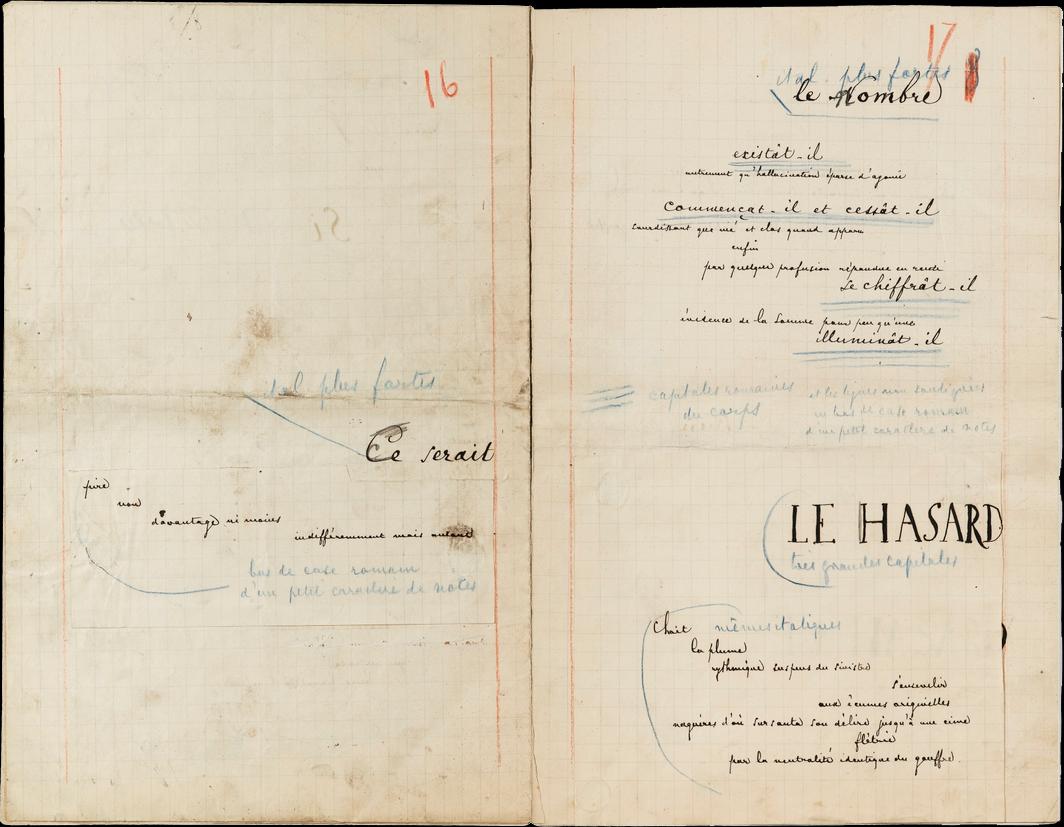 16
ital. plus fortes
Ce serait
pire
non
davantage ni moins
indifféremment mais autant
bas de case romain
d'un petit caractère de notes
17
ital. plus fortes
le Nombre
existât-il
autrement qu'hallucination éparse d'agonie
commençât-il et cessât-il
sourdissant que nié et clos quand apparu
enfin
par quelque profusion répandue en rareté
se chiffrât-il
évidence de la somme pour peu qu'une
illuminât-il
capitales romaines
du corps
et les lignes non soulignées
en bas de case romain
d'un petit caractère de notes
LE HASARD
très grandes capitales
Choit
mêmes italiques
la plume
rythmique suspens du sinistre
s'ensevelir
aux écumes originelles
naguères d'où sursauta son délire jusqu'à une cime
flétrie
par la neutralité identique du gouffre